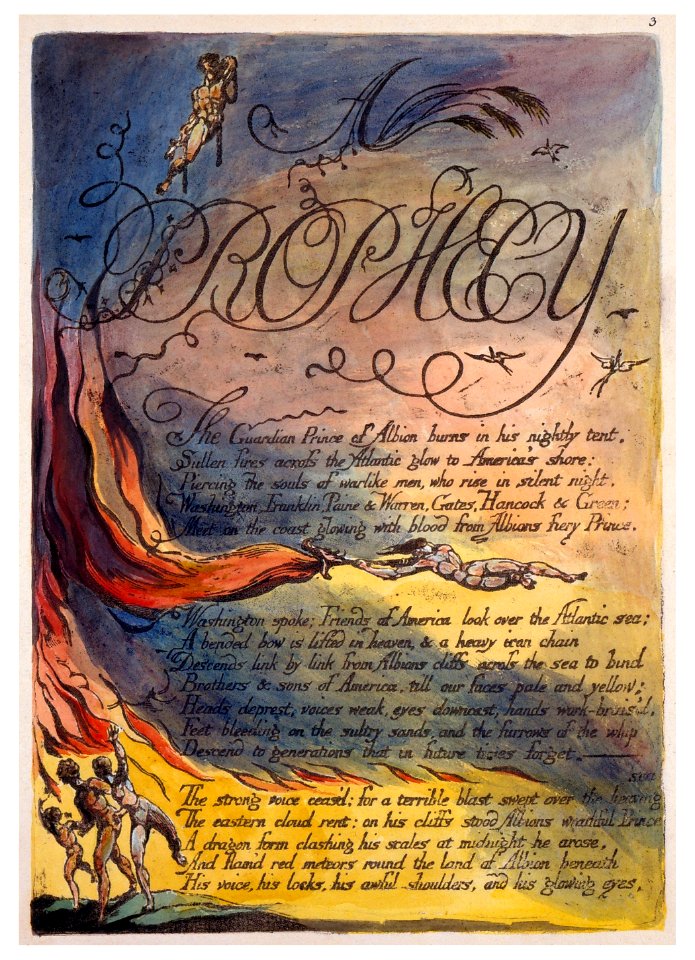 3
A
PROPHECY
The Guardian Prince of Albion burns in his nightly tent.
Sullen fires across the Atlantic glow to America's shore:
Piercing the souls of warlike men, who rise in silent night,
Washington, Franklin, Paine & Warren, Gates, Hancock & Green;
Meet on the coast glowing with blood from Albions fiery Prince.
Washington spoke; Friends of America look over the Atlantic sea;
A bended bow is lifted in heaven, & a heavy iron chain
Descends link by link from Albions cliffs across the sea to bind
Brothers & sons of America, till our faces pale and yellow;
Heads deprest, voices weak, eyes downcast, hands work-bruis'd,
Feet bleeding on the sultry sands, and the furrows of the whip
Descend to generations that in future times forget.
The strong voice ceas'd; for a terrible blast swept over the heaving
sea;
The eastern cloud rent; on his cliffs stood Albions wrathful Prince
A dragon form clashing his scales at midnight he arose,
And flam'd red meteors round the land of Albion beneath
His voice, his locks, his awful shoulders, and his glowing eyes,